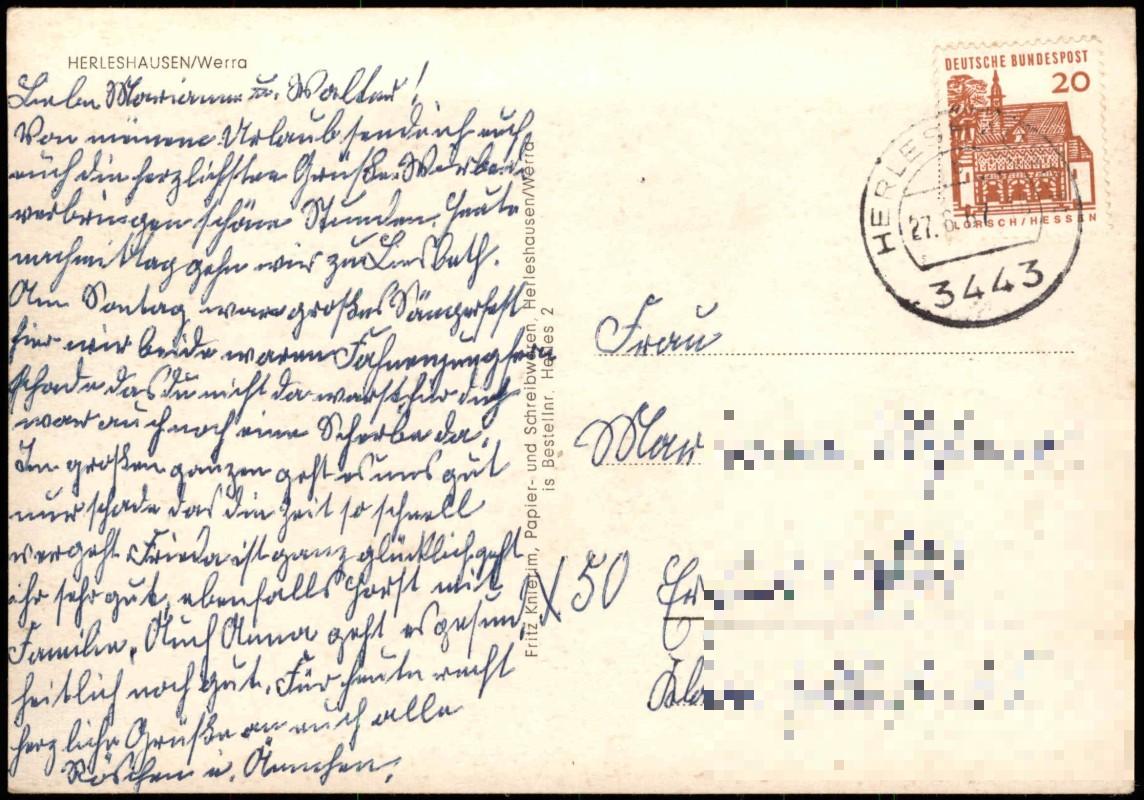 HERLESHAUSEN/Werra
Liebe Marianne u. Walter!
Von meinem Urlaub sende ich euch
auch die herzlichsten Grüße. Wir beide
verbringen schöne Stunden. Heute
nachmittag gehn wir zu Liesbeth.
Am Sontag war großes Sängerfest
hier wir beide waren Fahnenjungfern
schade das du nicht da warst für dich
war auch noch eine Scherbe da.
Im großen ganzen geht es uns gut
nur schade das die Zeit so schnell
vergeht. Frieda ist ganz glücklich geht
ihr sehr gut, ebenfalls Horst mit
Familie. Auch Anna geht es gesund
heitlich noch gut. Für heute recht
herzliche Grüße an euch alle
Röschen u. Ännchen.
Fritz Knierim, Papier- und Schreibwaren, Herleshausen/Werra
is Bestellnr. Herles 2
DEUTSCHE BUNDESPOST
20
LORSCH/HESSEN
HERLESH
27. 6. 67
3443
Frau
Mar
X 50